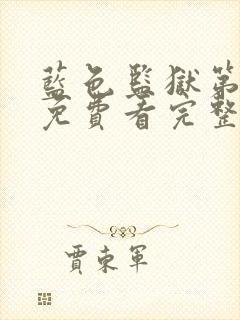 藍色監獄第
免費看完整
賈東軍